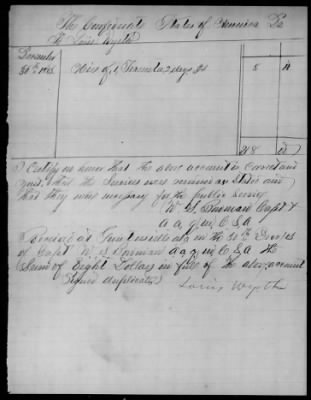 The Confederate States of America Dr
To Louis Wyeth
December
30th 1863 Hire of 1 Teamster 2 days $4 8 00
$ 8 00
I Certify on honor that the above account is correct and
just, that the services were rendered as stated and
that they were necessary for the public service
W. S. Bowman Capt &
A a q m C S A
Received at Guntersville ala on the 30th
of Capt W. S. Bowman a q m C S A the
Sum of Eight Dollars in full of the above account
Signed duplicates
Louis Wyeth